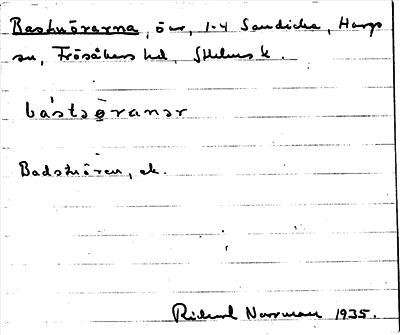 Bastuörarna, öar, 1-4 Sandika, Hargs
sn, Frösåkers hd, Sthlms l.
bástsøranar
Badstuören, ek.
Rickard Norrman 1935.